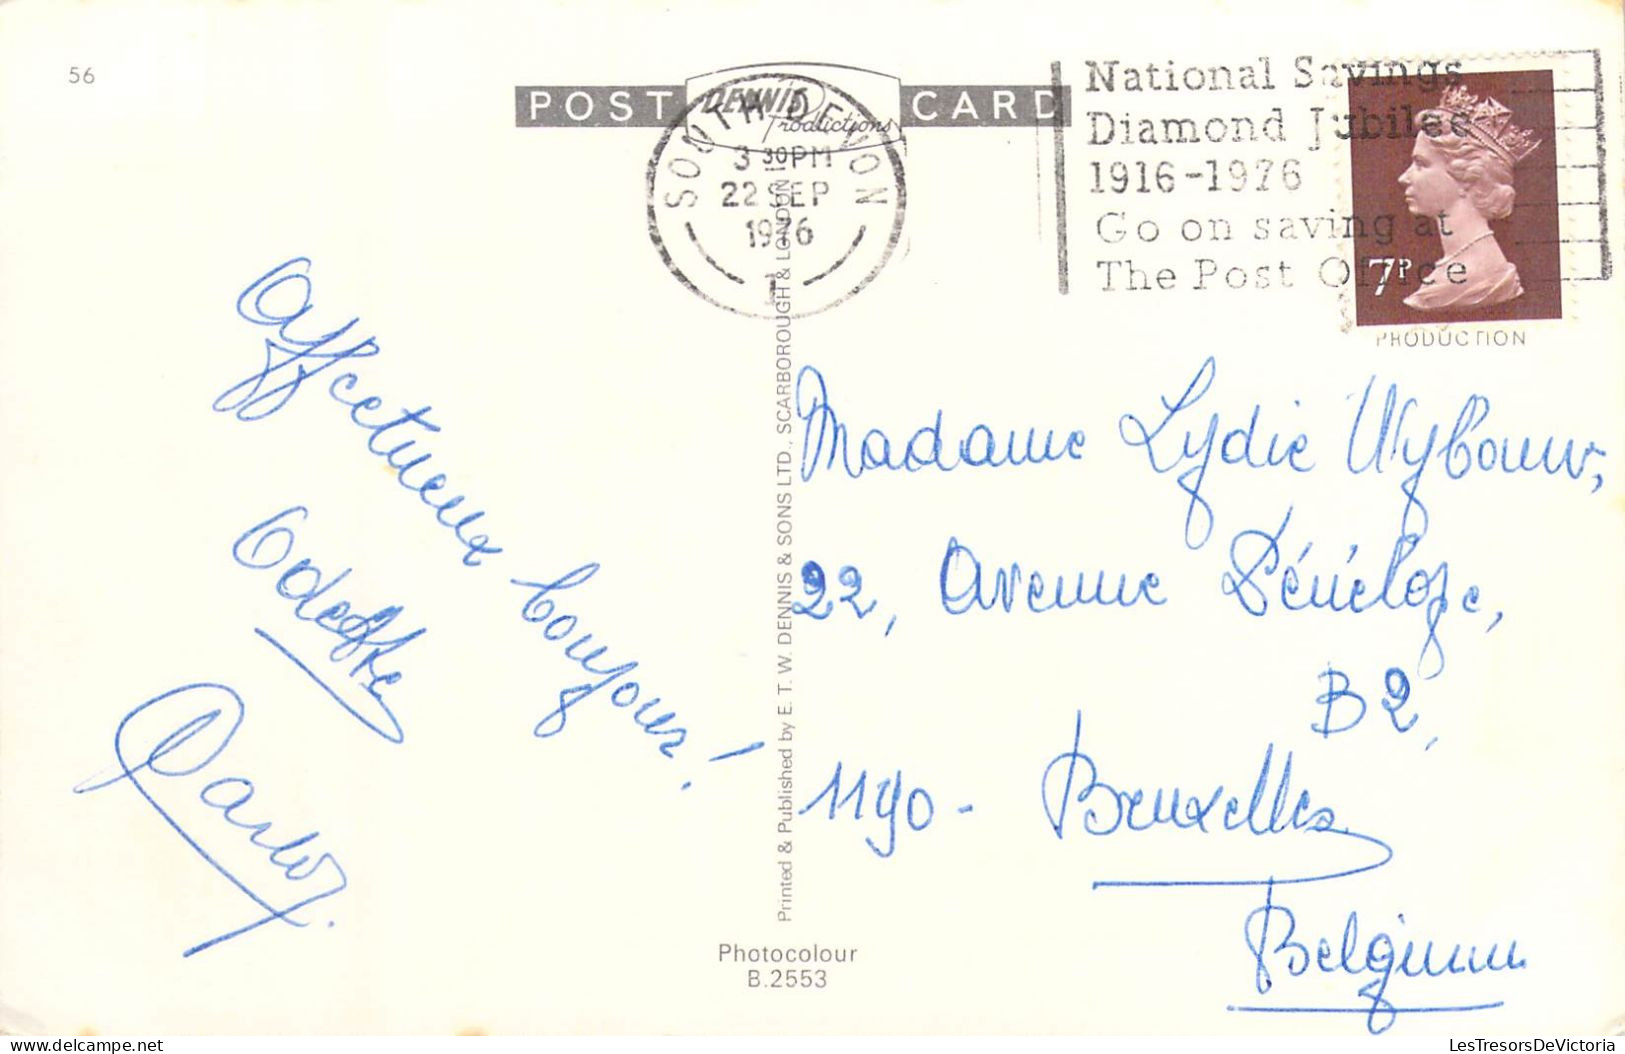 56
POST DENNIS Productions CARD
SOUTH DEVON
3 30PM
22 SEP
1976
National Savings
Diamond Jubilee
1916-1976
Go on saving at
The Post Office
7P
PRODUCTION
Affectueux bonjour!
Odette
Printed & Published by E. T. W. DENNIS & SONS LTD., SCARBOROUGH & LONDON
Madame Lydie Wybouw,
22, Avenue Pénélope,
B2,
1190 - Bruxelles
Belgium
Photocolour
B.2553
LesTresorsDeVictoria
delcampe.net